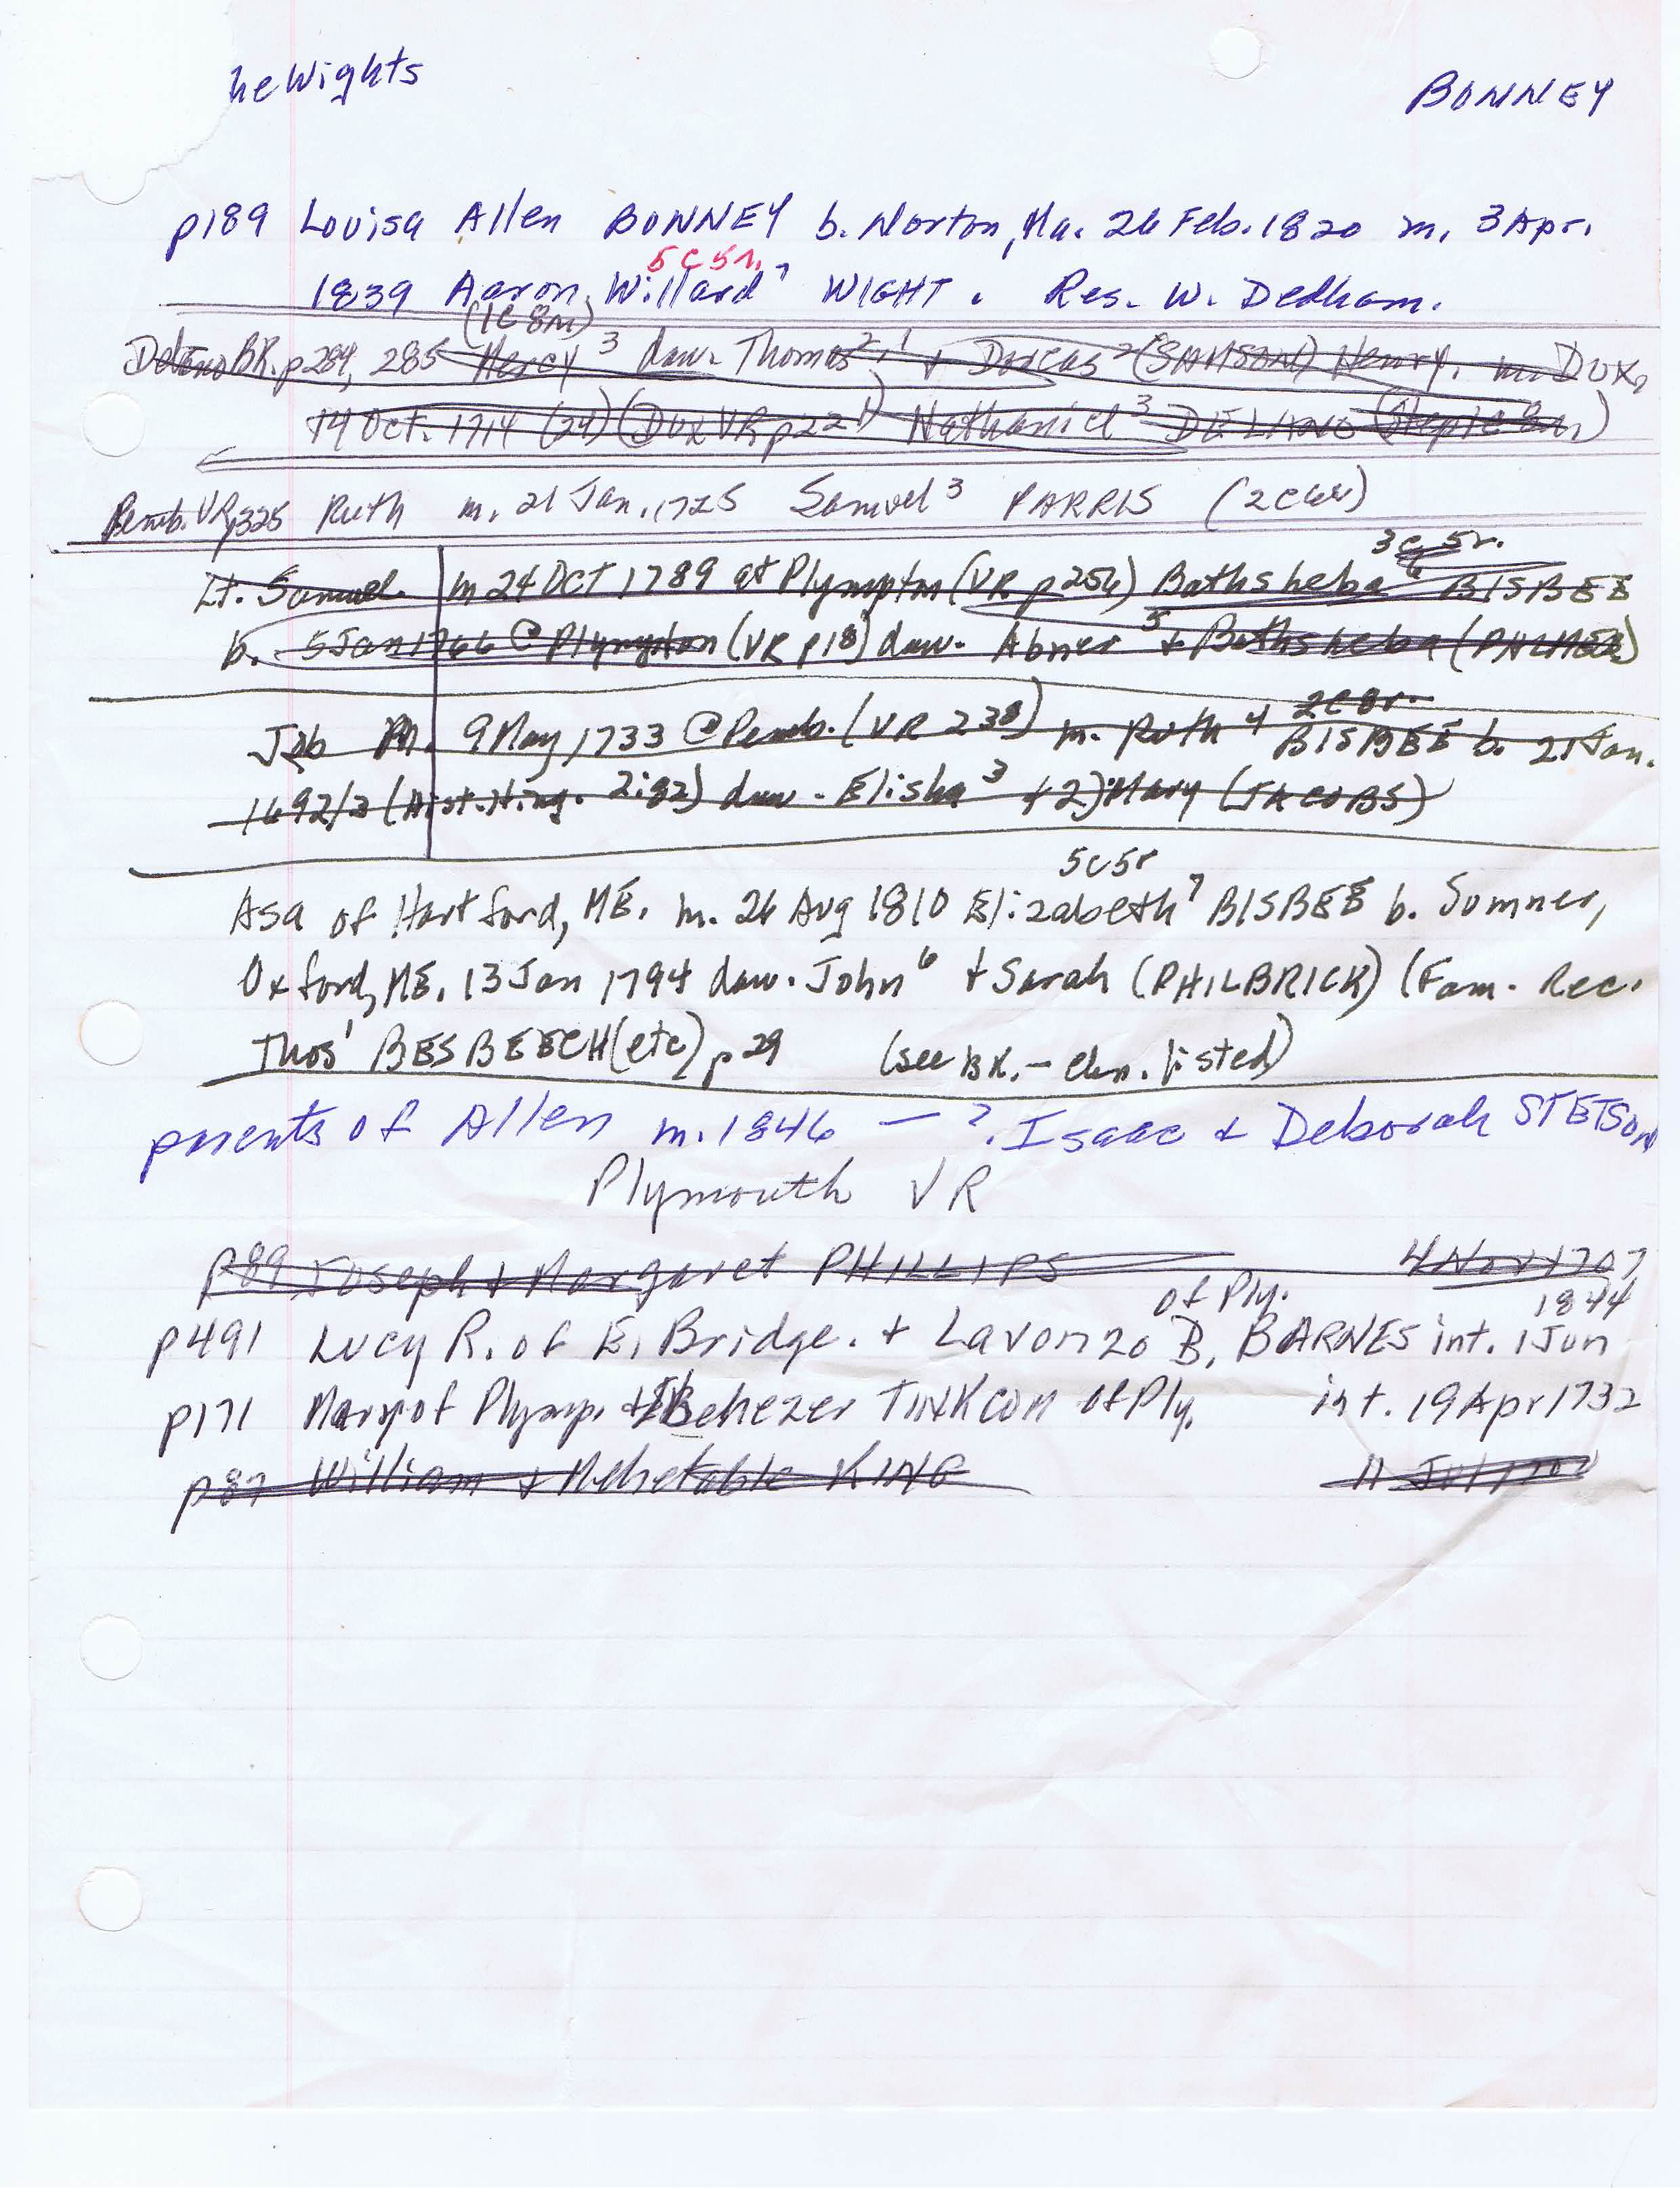 heWights
BONNEY
p189 Louisa Allen BONNEY b. Norton, Ma. 26 Feb. 1820 m. 3 Apr.
5C5r.
1839 Aaron Willard⁷ WIGHT. Res. W. Dedham.
(1C8r)
Delano BK. p284, 285 Mercy³ daw. Thomas² ¹ + Dorcas² (SAMSON) Henry, m. DUX,
14 Oct. 1714 (24) (DUX VR p221) Nathaniel³ DELANO
Pemb. VR p325 Ruth m. 21 Jan. 1725 Samuel³ PARRIS
3C5r.
Lt. Samuel m 24 OCT 1789 at Plympton (VR p256) Bathsheba⁶ BISBEE
b. 5 Jan 1766 @ Plympton (VR p18) daw. Abner⁵ + Bathsheba (PALMER)
2C8r.
Job m. 9 May 1733 @ Pemb. (VR 238) m. Ruth⁴ BISBEE b. 21 Jan.
1692/3 (Hist. Hing. 2:82) daw. Elisha³ + 2) Mary (JACOBS)
5C5r
Asa of Hartford, ME. m. 26 Aug 1810 Elizabeth⁷ BISBEE b. Sumner,
Oxford, ME. 13 Jan 1794 daw. John⁶ + Sarah (PHILBRICK) (Fam. Rec.
Thos¹ BESBEECH (etc) p29 (see BK. - chn. listed)
parents of Allen m. 1846 — ?. Isaac + Deborah STETSON
Plymouth VR
p89 Joseph + Margaret PHILLIPS 4 Nov 1707
of Ply. 1844
p491 Lucy R. of E. Bridge. + Lavonzo B. BARNES int. 1 Jun
p171 Mary of Plymp. + Ebenezer TINKCOM of Ply. int. 19 Apr 1732
p87 William + Mehetable KING 11 Jul